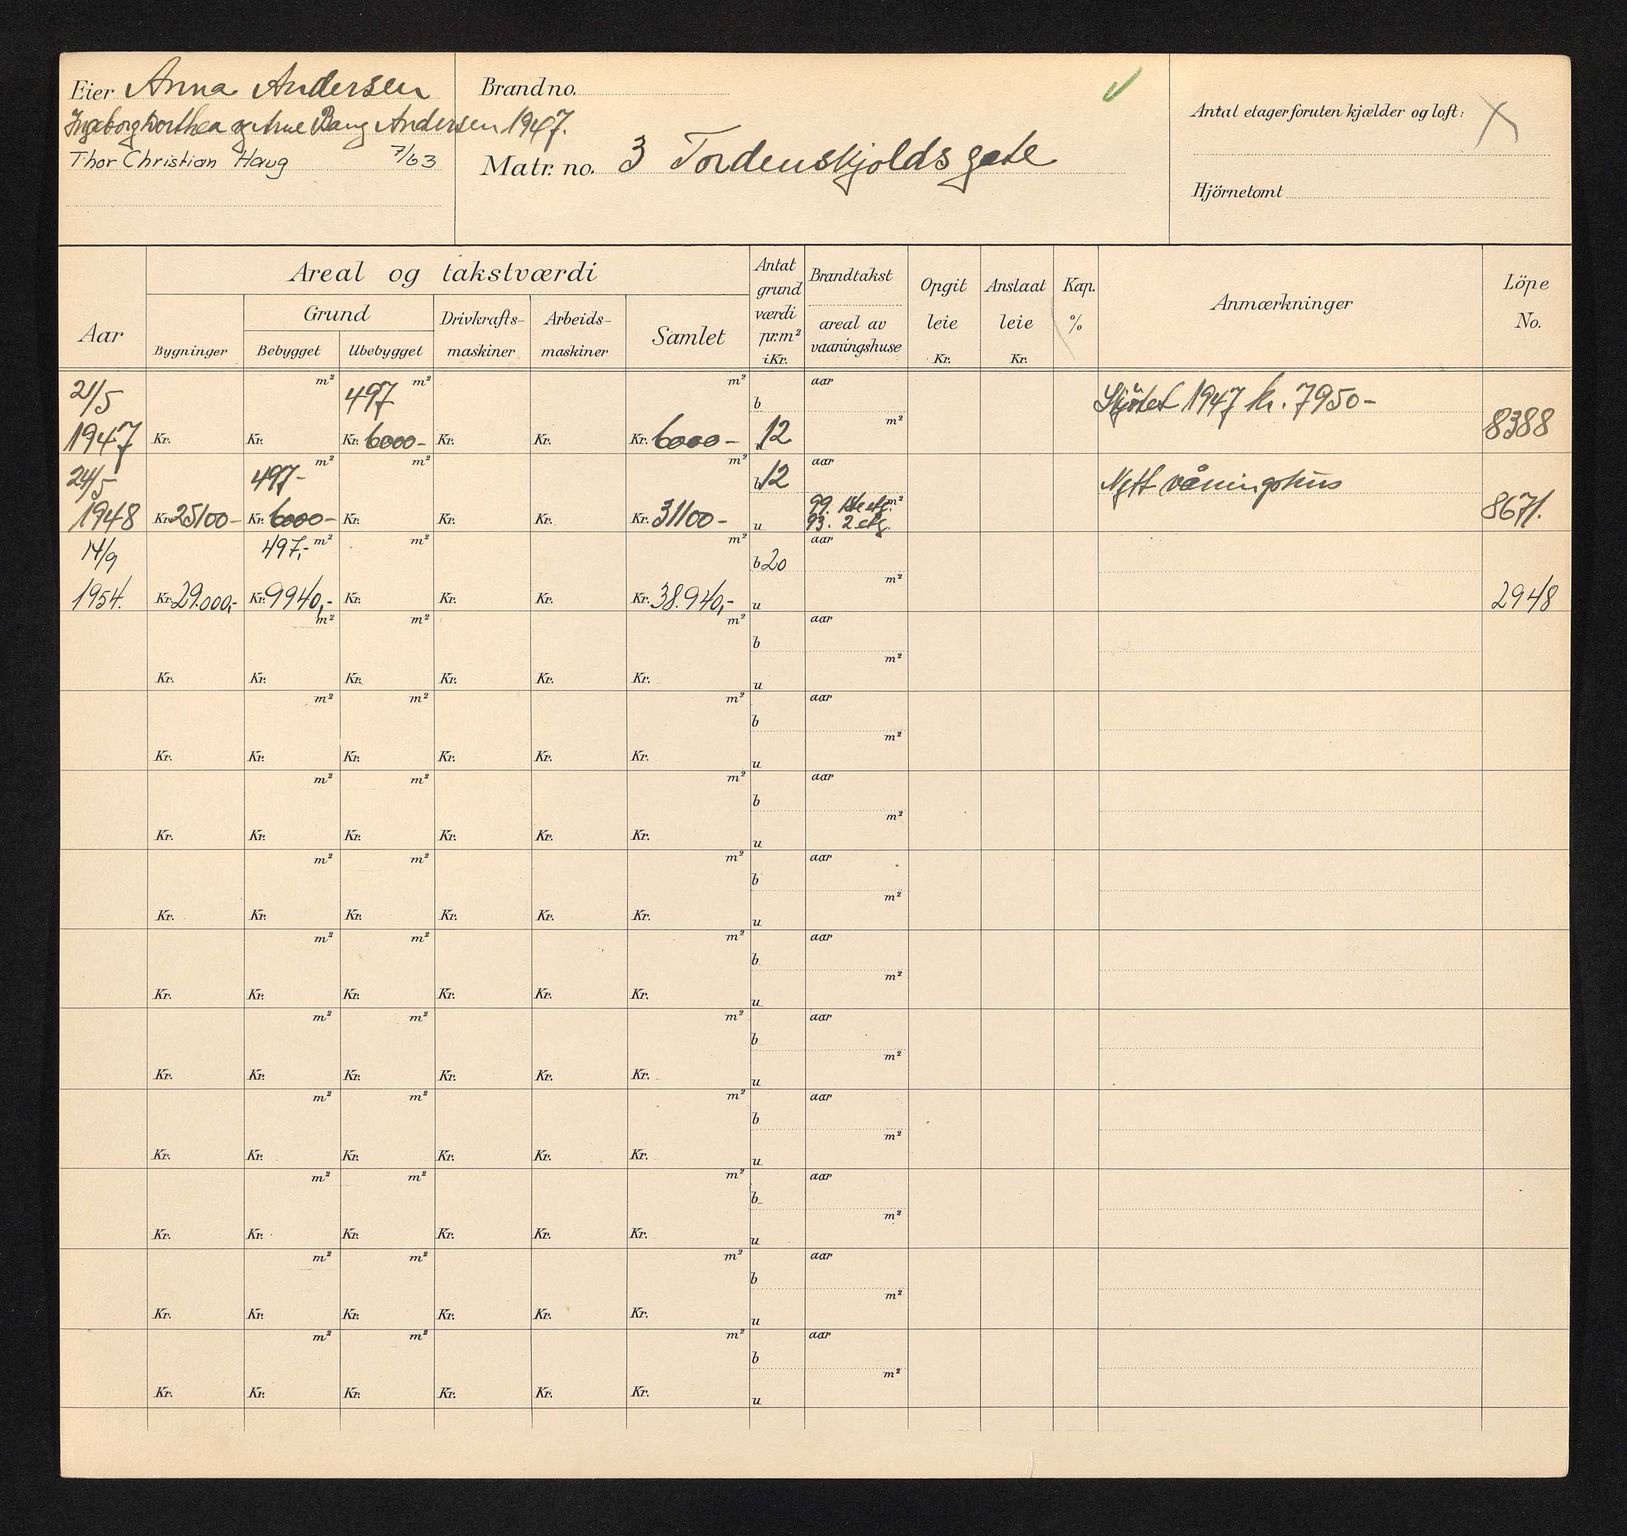 Eier Anna Andersen
Ingeborg Dorthea og Arne Bang Andersen 1947.
Thor Christian Haug 7/63
Brand no.
Matr. no. 3 Tordenskjolds gate
Antal etager foruten kjælder og loft:
Hjörnetomt
Aar
Areal og takstværdi
Bygninger
Grund
Bebygget
Ubebygget
Drivkrafts-
maskiner
Arbeids-
maskiner
Samlet
Antat
grund
værdi
pr.m²
i Kr.
Brandtakst
areal av
vaaningshuse
Opgit
leie
Kr.
Anslaat
leie
Kr.
Kap.
%
Anmærkninger
Löpe
No.
21/5 m² 497 m² m² b aar Skjötet 1947 kr. 7950-
1947 Kr. Kr. Kr. 6000- Kr. Kr. Kr. 6000- 12 m² 8388
24/5 497- m² m² m² b 12 aar Nytt våningshus
99. 1ste etg. m²
1948 Kr. 25100- Kr. 6000- Kr. Kr. Kr. Kr. 31100- u 93. 2 etg. 8671.
14/9 497,- m² m² m² b 20 aar
1954. Kr. 29.000,- Kr. 9940,- Kr. Kr. Kr. Kr. 38.940,- u m² 2948
m² m² m² b aar
Kr. Kr. Kr. Kr. Kr. Kr. u m²
m² m² m² b aar
Kr. Kr. Kr. Kr. Kr. Kr. u m²
m² m² m² b aar
Kr. Kr. Kr. Kr. Kr. Kr. u m²
m² m² m² b aar
Kr. Kr. Kr. Kr. Kr. Kr. u m²
m² m² m² b aar
Kr. Kr. Kr. Kr. Kr. Kr. u m²
m² m² m² b aar
Kr. Kr. Kr. Kr. Kr. Kr. u m²
m² m² m² b aar
Kr. Kr. Kr. Kr. Kr. Kr. u m²
m² m² m² b aar
Kr. Kr. Kr. Kr. Kr. Kr. u m²
m² m² m² b aar
Kr. Kr. Kr. Kr. Kr. Kr. u m²
m² m² m² b aar
Kr. Kr. Kr. Kr. Kr. Kr. u m²